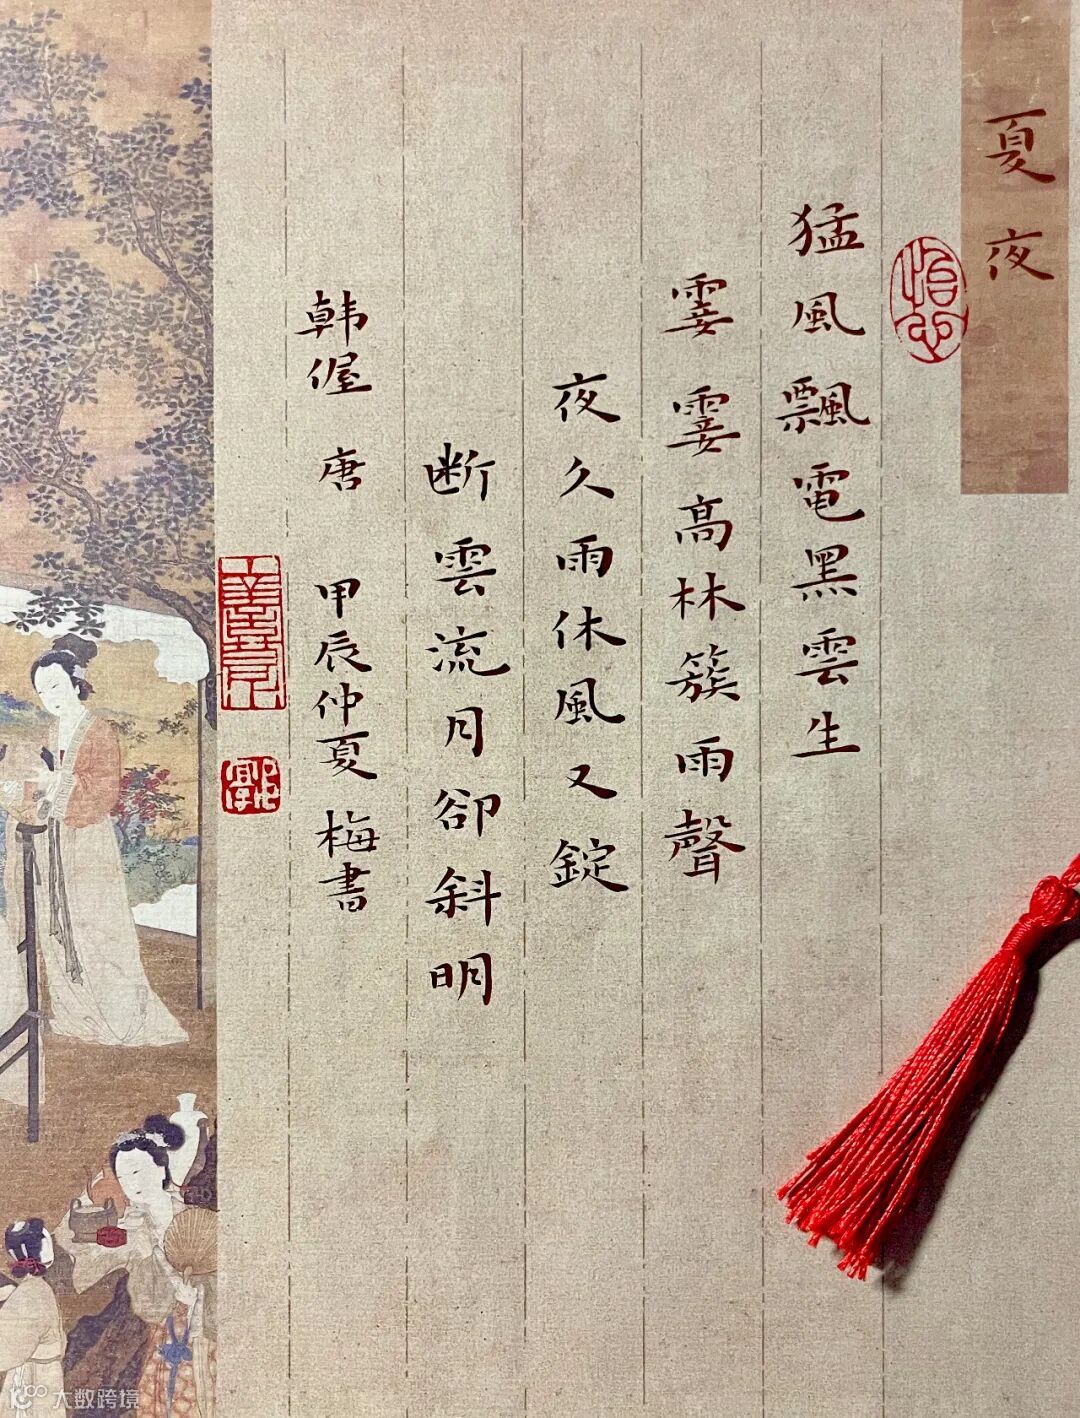 夏夜
猛風飄電黑雲生
霎霎高林簇雨聲
夜久雨休風又錠
断雲流月卻斜明
韩偓 唐 甲辰仲夏 梅書
大数跨境